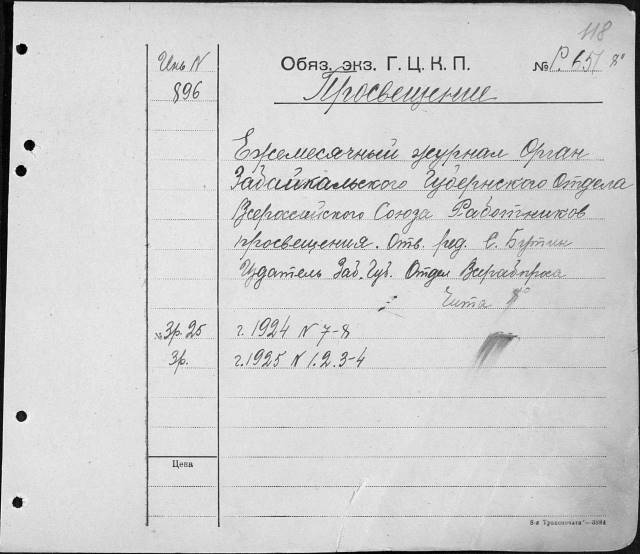 118
Инв N
896
Обяз. экз. Г. Ц. К. П. № Р. 651 8°
Просвещение
Ежемесячный журнал Орган
Забайкальского Губернского Отдела
Всероссийского Союза Работников
просвещения. Отв. ред. С. Бутин
Издатель Заб. Губ. Отдел Всерабпроса
Чита 8°
№ Зр. 25 г. 1924 N 7-8
Зр. г. 1925 N 1. 2. 3-4
Цена
8-я "Транспечати"—3384